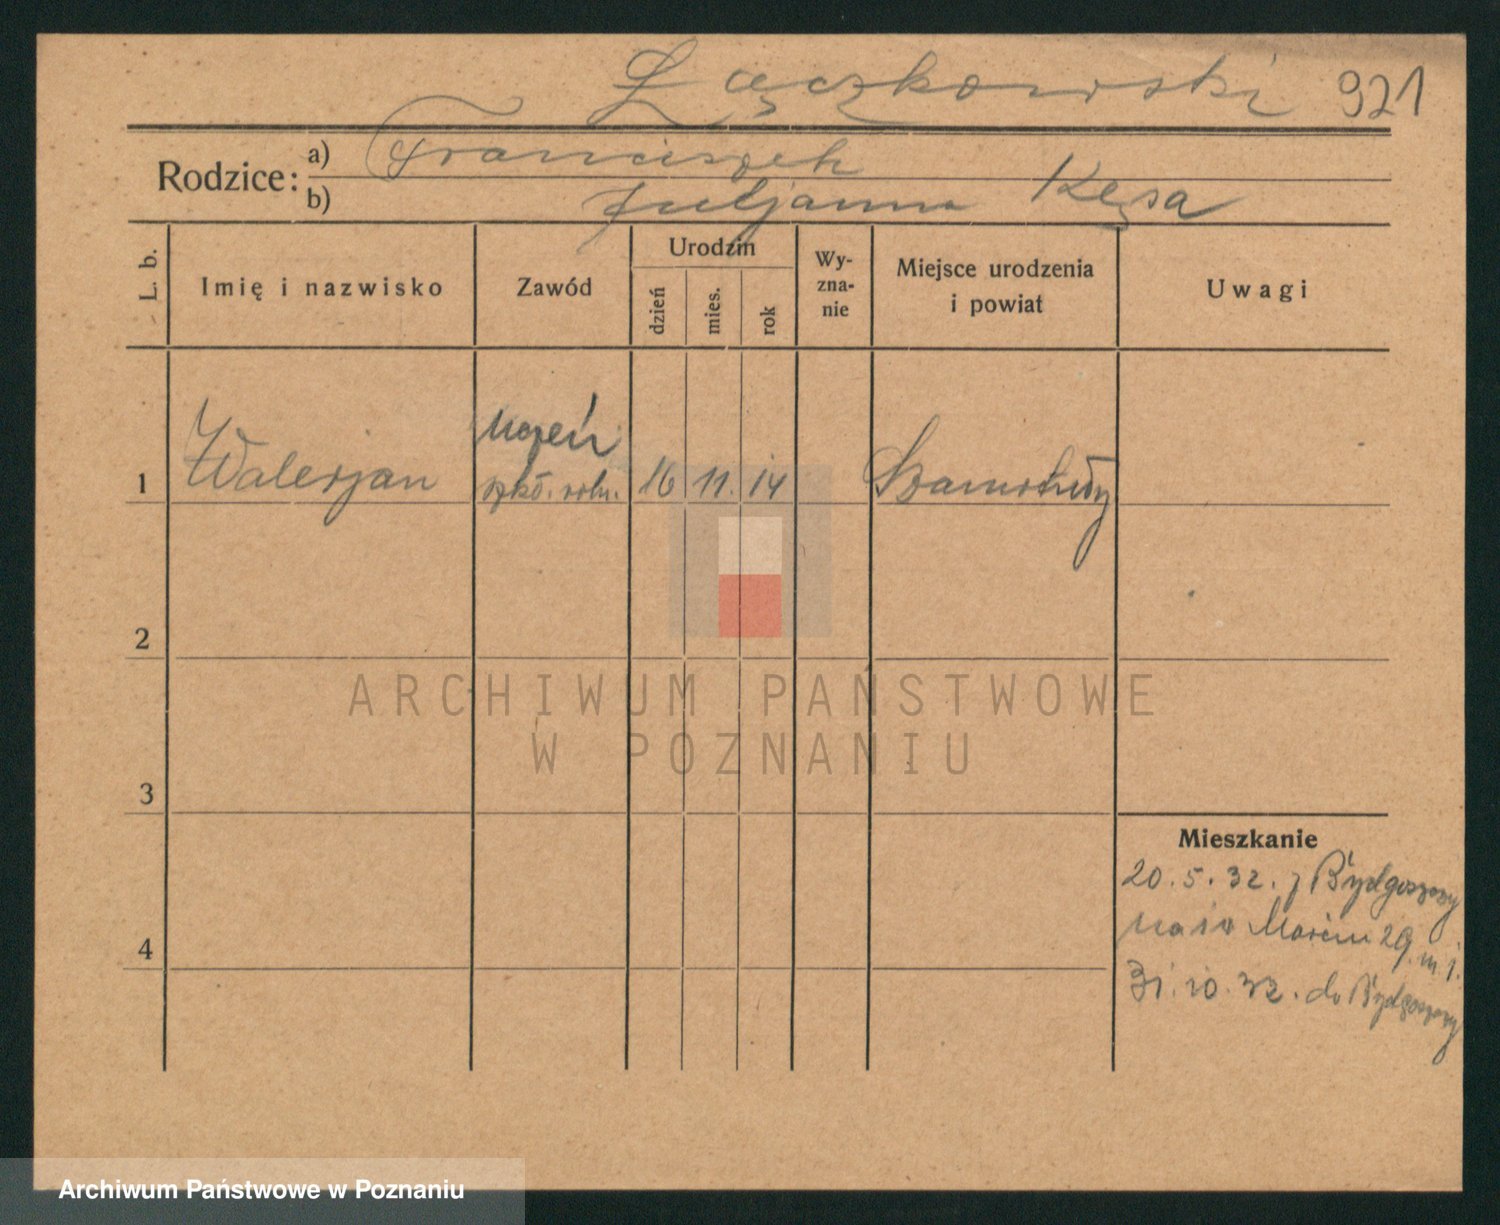 Łączkowski 921
Rodzice: a) Franciszek
b) Juljanna Kęsa
L. b. Imię i nazwisko Zawód Urodzin Wy-zna-nie Miejsce urodzenia i powiat Uwagi
dzień mies. rok
uczeń
1 Walerjan szkoł. roln. 16 11. 14 Szamotuły
2
ARCHIWUM PAŃSTWOWE
W POZNANIU
3
Mieszkanie
20.5.32. z Bydgoszczy
Marcin 29 m. 1.
4
31.10.32. do Bydgoszczy
Archiwum Państwowe w Poznaniu